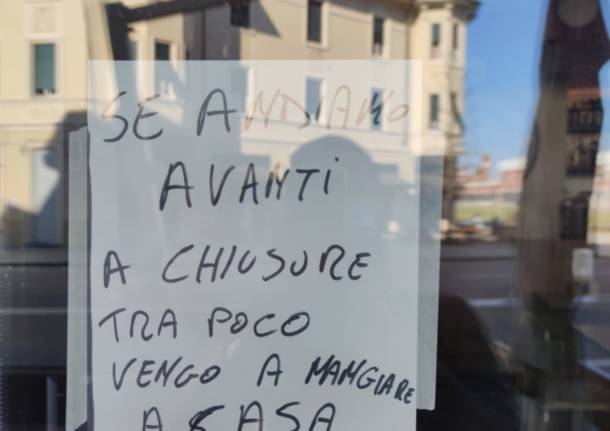 SE ANDIAMO
AVANTI
A CHIUSURE
TRA POCO
VENGO A MANGIARE
A CASA